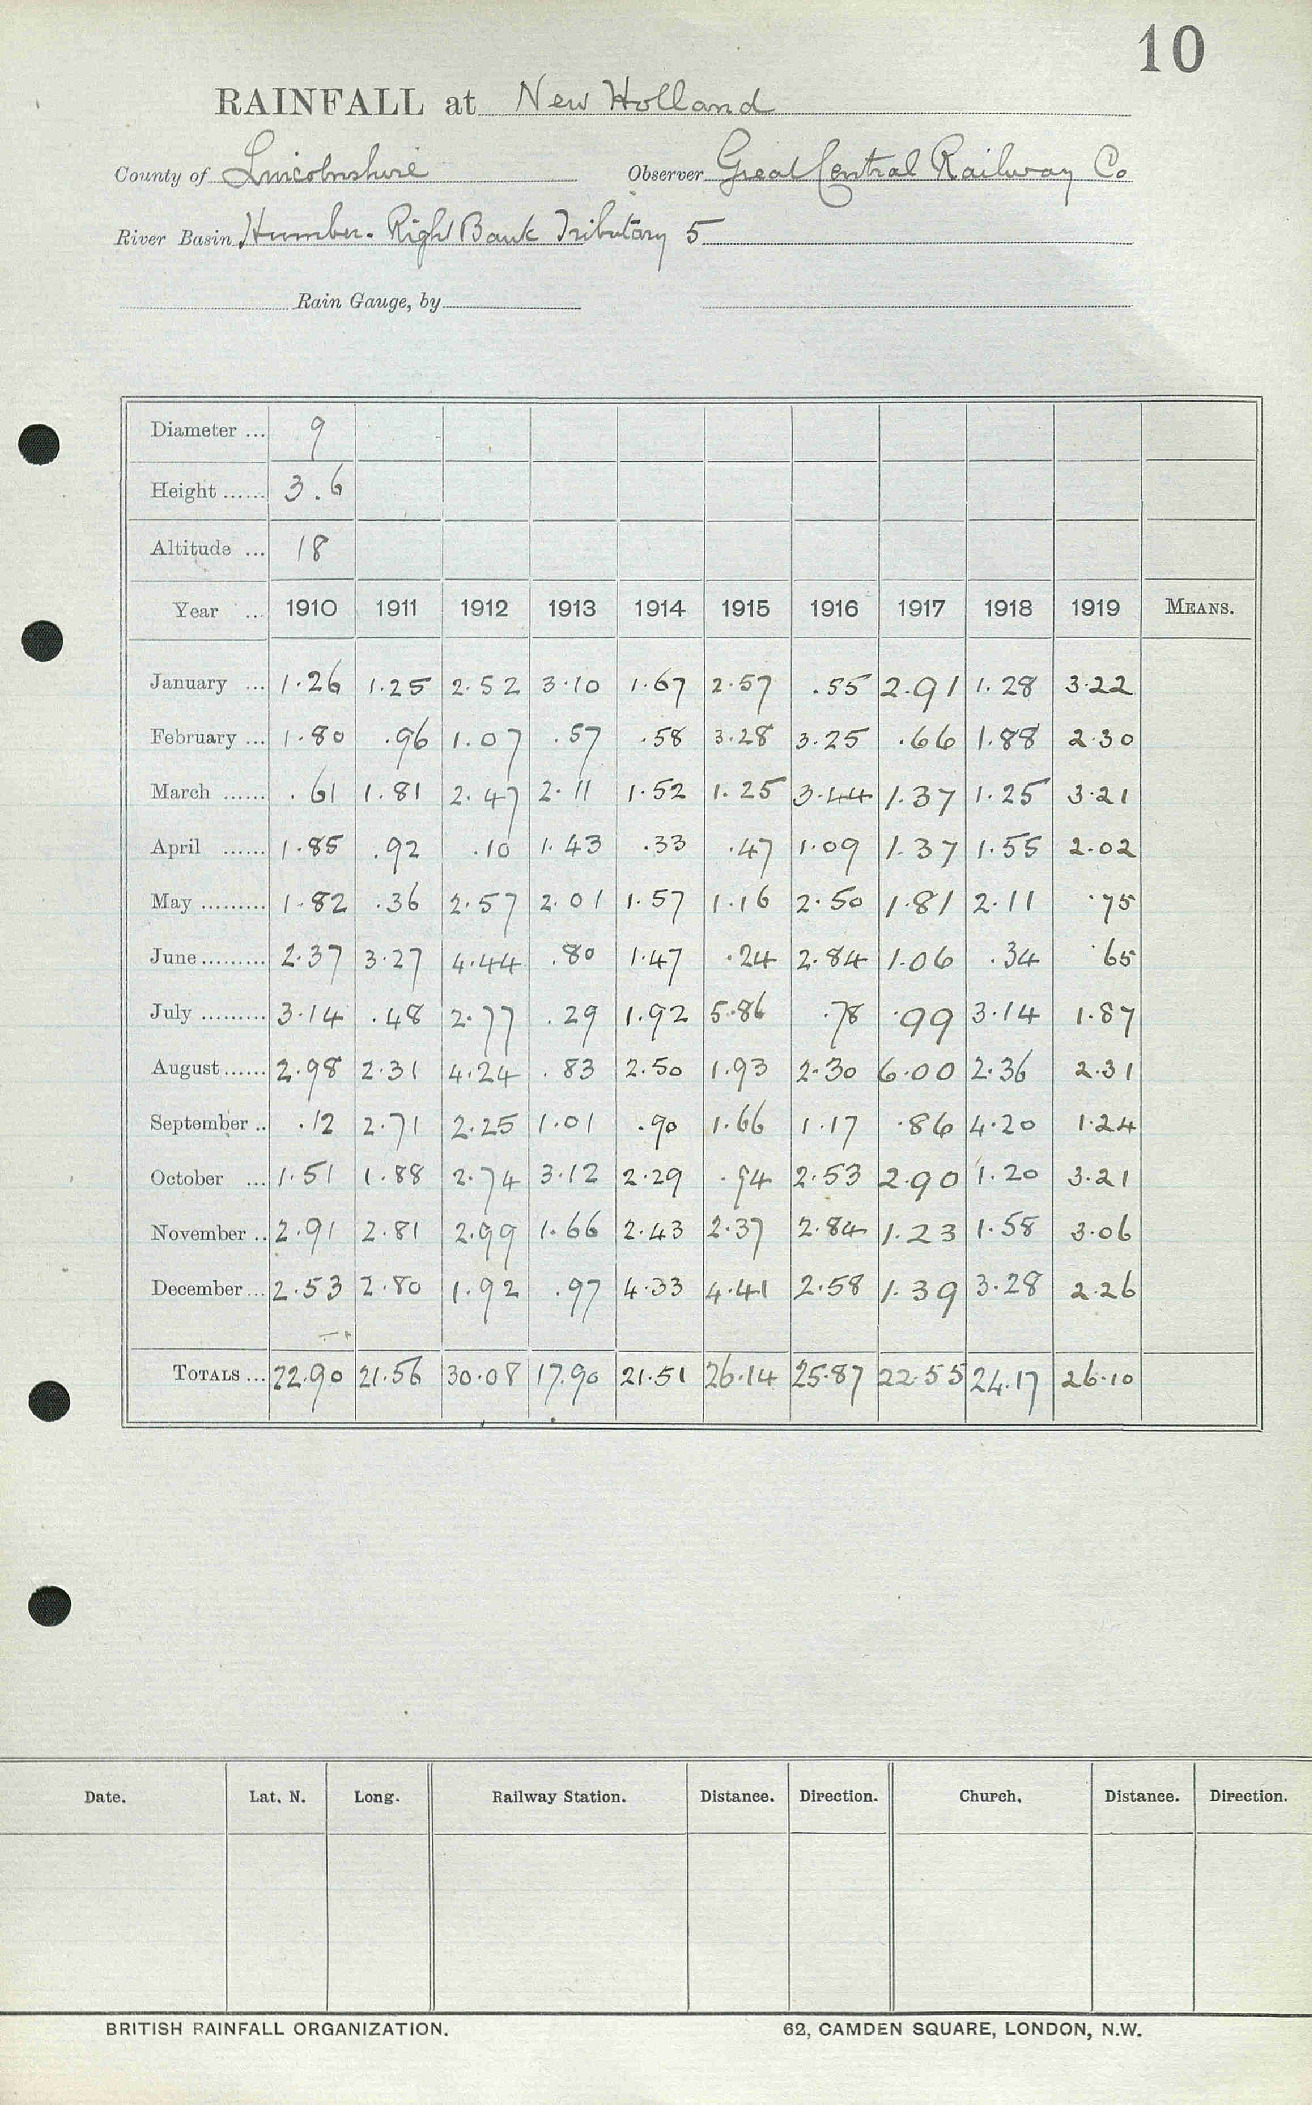 10
RAINFALL at New Holland
County of Lincolnshire Observer Great Central Railway Co
River Basin Humber. Right Bank Tributary 5
Rain Gauge, by
Diameter ... 9
Height ...... 3.6
Altitude ... 18
Year ... 1910 1911 1912 1913 1914 1915 1916 1917 1918 1919 MEANS.
January ... 1.26 1.25 2.52 3.10 1.67 2.57 .55 2.91 1.28 3.22
February ... 1.80 .96 1.07 .57 .58 3.28 3.25 .66 1.88 2.30
March ...... .61 1.81 2.47 2.11 1.52 1.25 3.44 1.37 1.25 3.21
April ...... 1.85 .92 .10 1.43 .33 .47 1.09 1.37 1.55 2.02
May ......... 1.82 .36 2.57 2.01 1.57 1.16 2.50 1.81 2.11 .75
June ......... 2.37 3.27 4.44 .80 1.47 .24 2.84 1.06 .34 .65
July ......... 3.14 .48 2.77 .29 1.92 5.86 .78 .99 3.14 1.87
August ...... 2.98 2.31 4.24 .83 2.50 1.93 2.30 6.00 2.36 2.31
September .. .12 2.71 2.25 1.01 .90 1.66 1.17 .86 4.20 1.24
October ... 1.51 1.88 2.74 3.12 2.29 .94 2.53 2.90 1.20 3.21
November .. 2.91 2.81 2.99 1.66 2.43 2.37 2.84 1.23 1.58 3.06
December ... 2.53 2.80 1.92 .97 4.33 4.41 2.58 1.39 3.28 2.26
TOTALS ... 22.90 21.56 30.08 17.90 21.51 26.14 25.87 22.55 24.17 26.10
Date. Lat. N. Long. Railway Station. Distance. Direction. Church. Distance. Direction.
BRITISH RAINFALL ORGANIZATION. 62, CAMDEN SQUARE, LONDON, N.W.